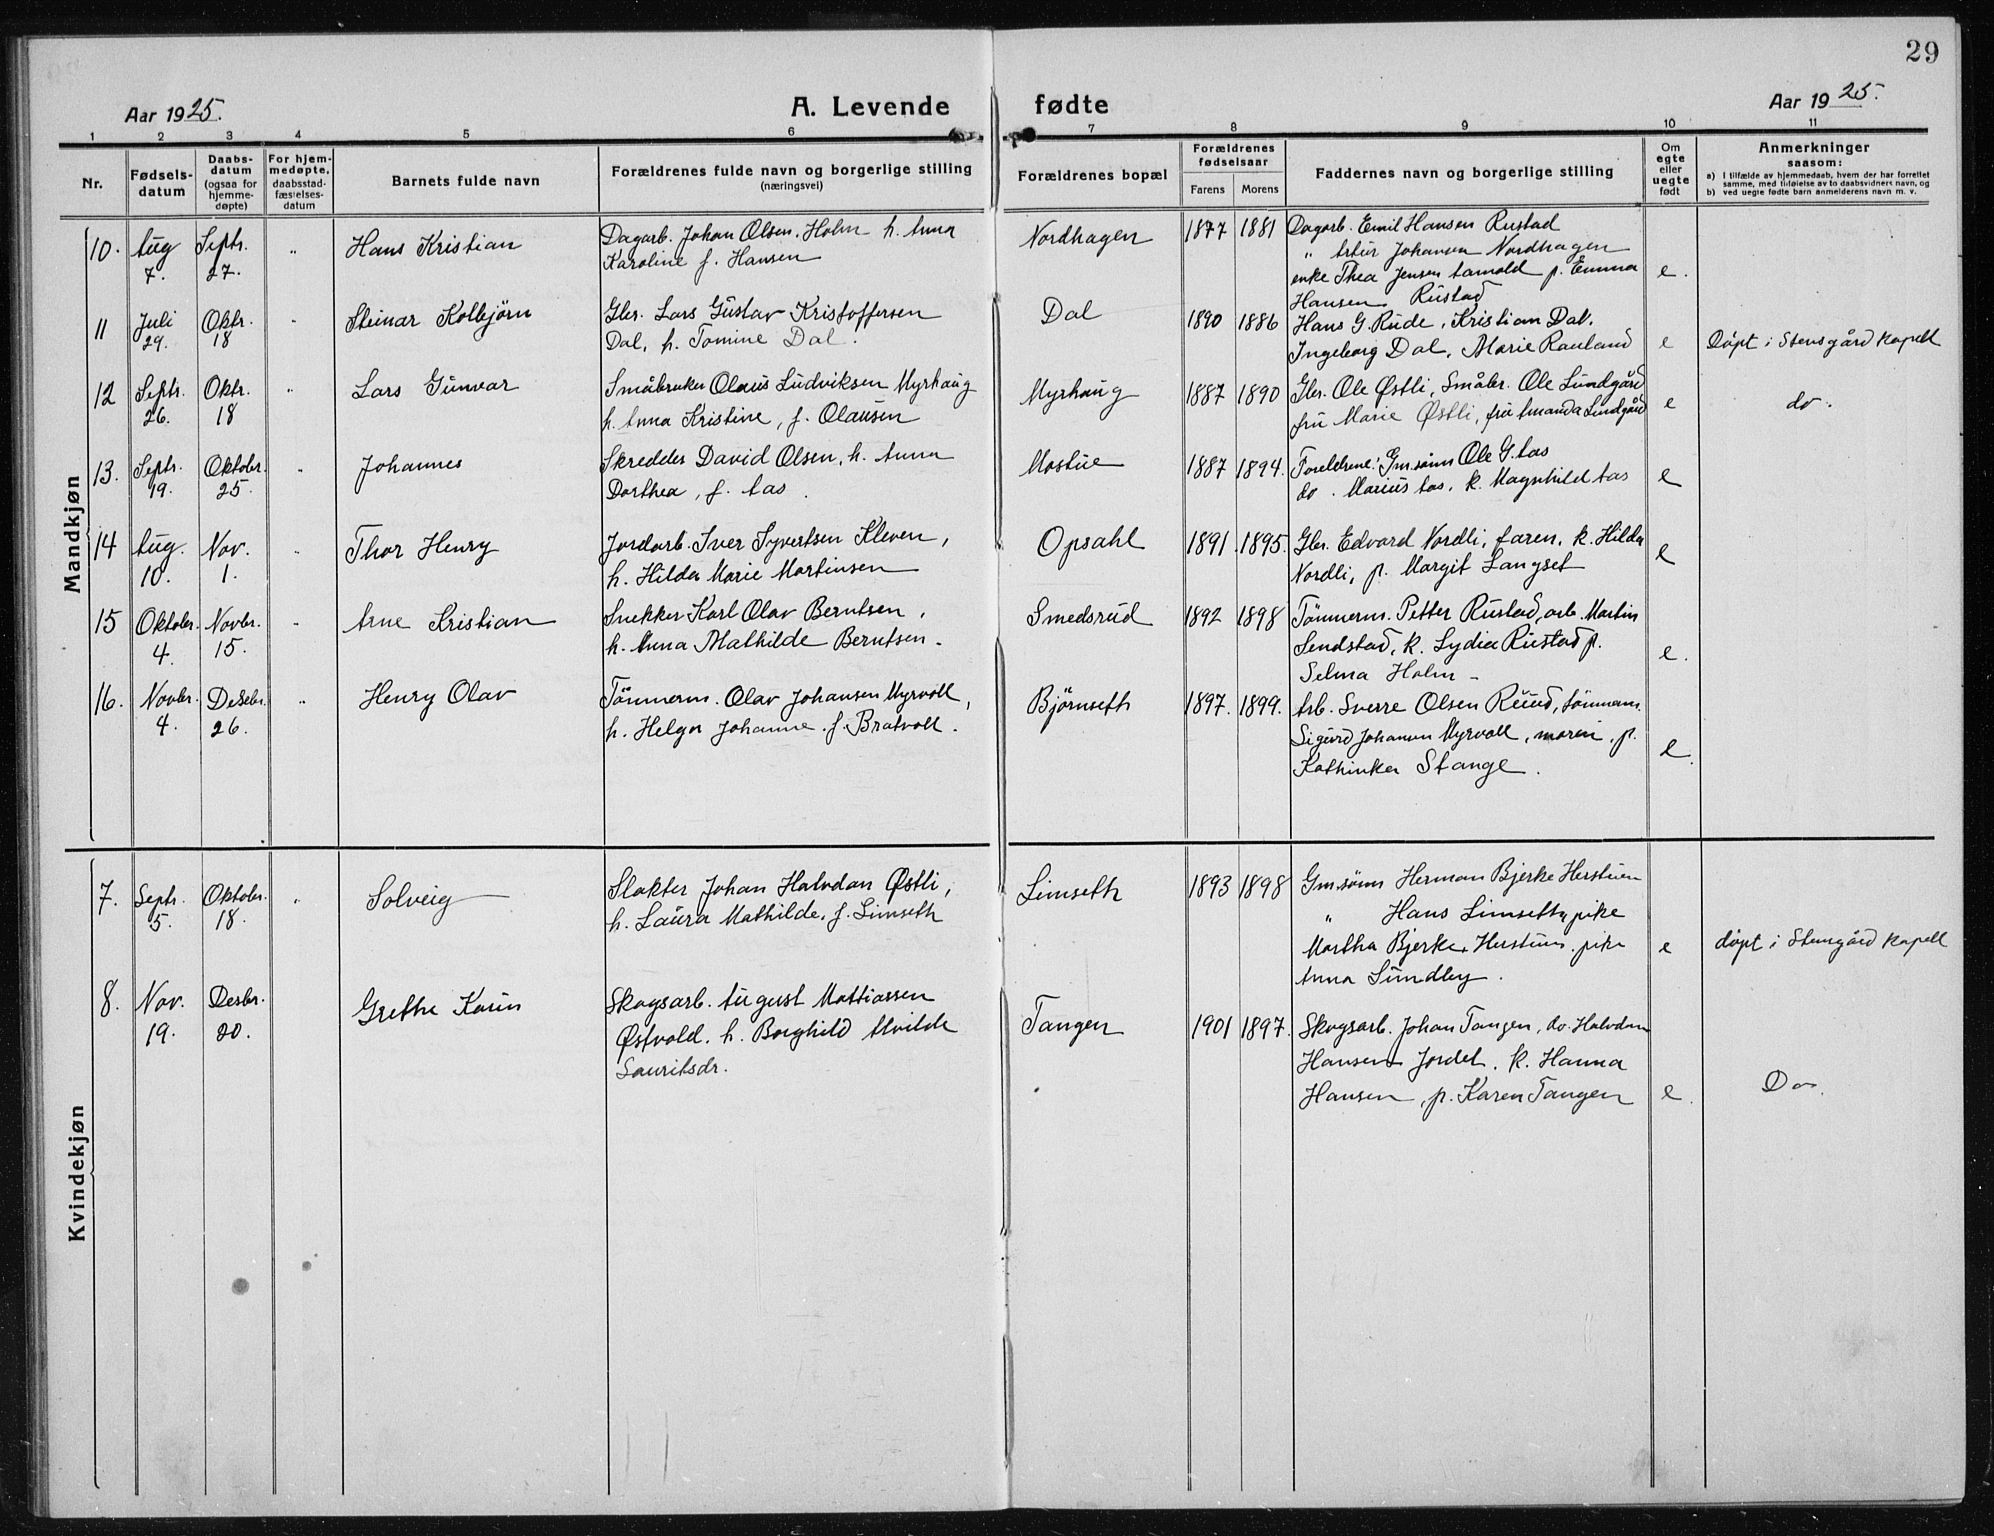 29
Aar 1925. A. Levende fødte Aar 1925.
1 2 3 4 5 6 7 8 9 10 11
Nr. Fødsels-datum Daabs-datum (ogsaa for hjemme-døpte) For hjem-medøpte, daabsstad-fæstelses-datum Barnets fulde navn Forældrenes fulde navn og borgerlige stilling (næringsvei) Forældrenes bopæl Forældrenes fødselsaar Farens Morens Faddernes navn og borgerlige stilling Om egte eller uegte født Anmerkninger saasom:
a) I tilfælde av hjemmedaab, hvem der har forrettet samme, med tilføielse av to daabsvidners navn, og
b) ved uegte fødte barn anmelderens navn m. v.
Mandkjøn
10. Aug 7. Septr. 27. " Hans Kristian Dagarb. Johan Olsen Holm h. Anna Nordhagen 1877 1881 Dagarb. Emil Hansen Rustad
Karoline f. Hansen " Artur Johansen Nordhagen
enke Thea Jensen Aamold p. Emma e.
Hansen Rustad
11 Juli 29. Oktr. 18 " Steinar Kolbjörn Gbr. Lars Gustav Kristoffersen Dal 1890 1886 Hans G. Rude, Kristian Dal.
Dal, h. Tomine Dal. Ingeborg Dal, Marie Rauland e Döpt i Stensgård Kapell
12 Septr. 26. Oktr. 18 " Lars Gunvar Småbruker Olaus Ludviksen Myrhaug Myrhaug 1887 1890 Gbr. Ole Østli, Småbr. Ole Lundgård
h. Anna Kristine, f. Olausen fru Marie Østli, fru Amanda Lundgård e do.
13. Septr. 19. Oktober. 25. " Johannes Skredder David Olsen, h. Anna Mostue 1887 1894. Foreldrene: Gm.sönn Ole G. Aas
Dorthea, f. Aas. do. Marius Aas, k. Magnhild Aas e
14 Aug. 10. Nov. 1. " Thor Henry Jordarb. Iver Syvertsen Kleven, Opsahl 1891. 1895. Gbr. Edvard Nordli, faren, k. Hilda
h. Hilda Marie Martinsen Nordli, p. Margit Langset e
15 Oktober. 4. Novbr. 15. " Arne Kristian Snekker Karl Olav Berntsen, Smedsrud 1892 1898 Tömmerm. Petter Rustad, arb. Martin
h. Anna Mathilde Berntsen. Sendstad, k. Lydia Rustad p.
Selma Holm e.
16. Novbr. 4. Desebr. 26. " Henry Olav Tömmerm. Olav Johansen Myrvoll, Björnseth 1897. 1899. Arb. Sverre Olsen Ruud, tömmerm.
h. Helga Johanne f. Bratvoll. Sigurd Johansen Myrvoll, moren, p.
Kathinka Stange. e.
Kvindekjøn
7. Septr. 5. Oktober. 18. " Solveig Slakter Johan Halvdan Østli, Limseth 1893 1898 Gm.sönn Herman Bjerke Herstuen
h. Laura Mathilde, f. Limseth " Hans Limseth, pike
Martha Bjerke Herstuen. pike e döpt i Stensgård Kapell
Anna Lundby.
8. Nov. 19. Desbr. 20. Grethe Karin Skogsarb. August Mattiassen Tangen 1901 1897. Skogsarb. Johan Tangen, do. Halvdan
Østvold. h. Borghild Alvilde Hansen Jordet. k. Hanna
Lauritsdr. Hansen, p. Karen Tangen e. Do.